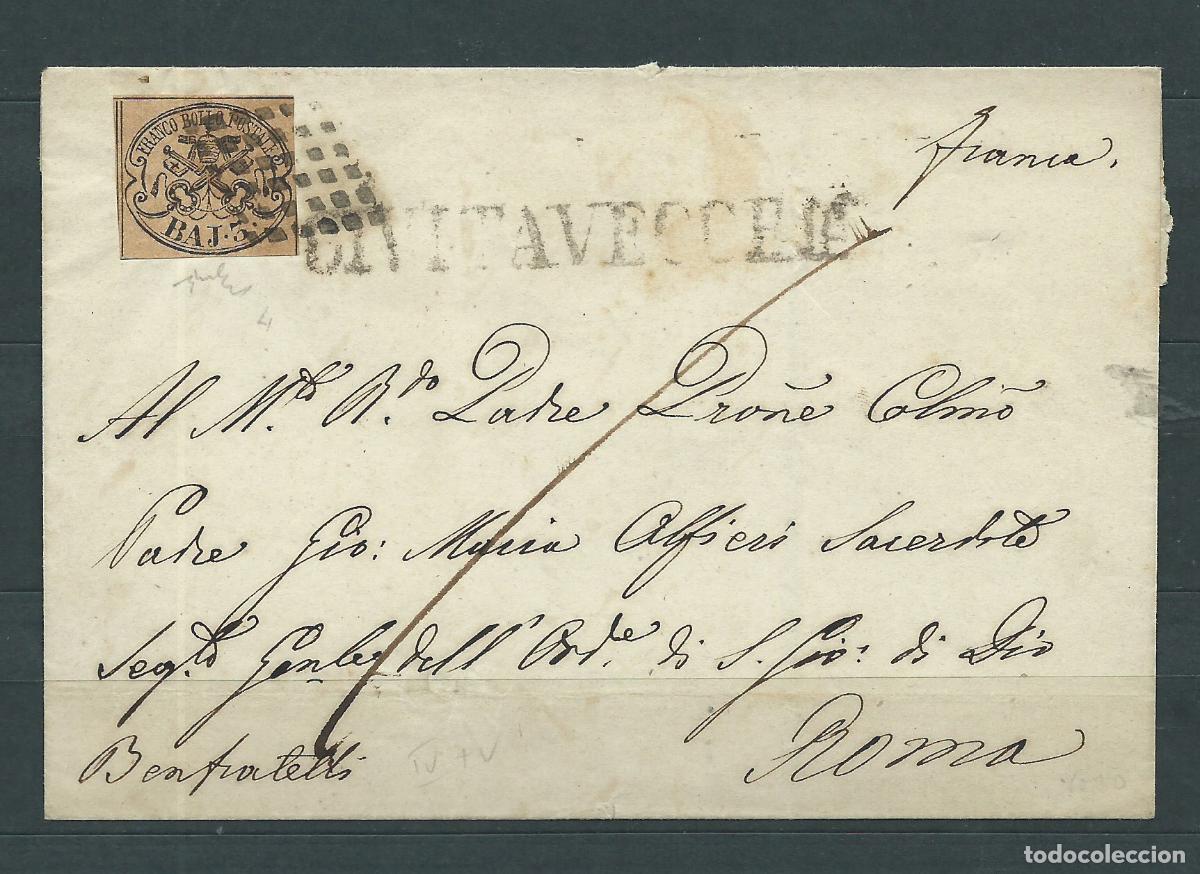 FRANCO BOLLO POSTALE
BAJ. 3.
CIVITAVECCHIA
franca.
4
Al M.to R.do Padre Prone Colmo
Padre Gio: Maria Alfieri Sacerdote
Seg.to Genle dell' Ord.e di S. Gio: di Dio
Benfratelli
Roma
IV + V
todocoleccion
todocoleccion.net